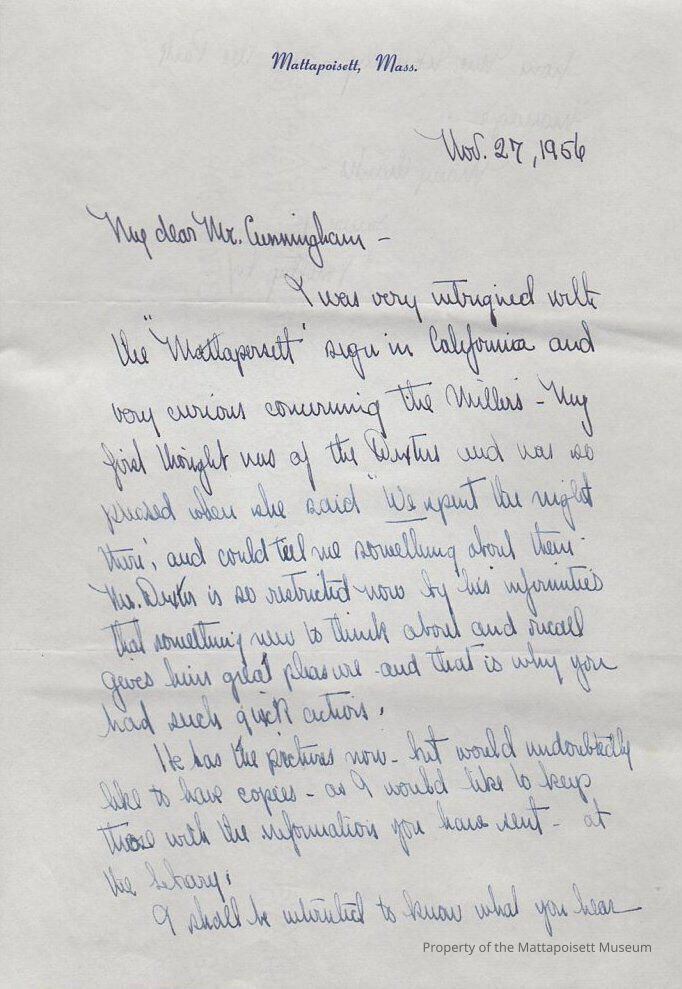 Mattapoisett, Mass.
Nov. 27, 1956
My dear Mr. Cunningham -
I was very intrigued with
the "Mattapoisett" sign in California and
very curious concerning the Millers - My
first thought was of the Dexters and was so
pleased when she said "We spent the night
there", and could tell me something about them -
Mr. Dexter is so restricted now by his infirmities
that something new to think about and recall
gives him great pleasure - and that is why you
had such quick action.
He has the pictures now - but would undoubtedly
like to have copies - as I would like to keep
those with the information you have sent - at
the library.
I shall be interested to know what you hear
Property of the Mattapoisett Museum